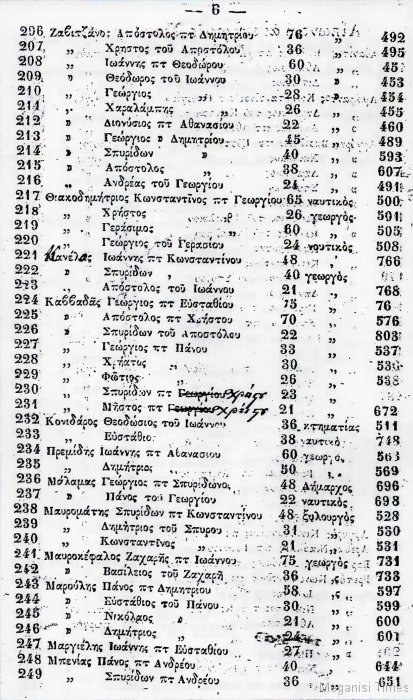 — 6 —
206 Ζαβιτζάνος Απόστολος πτ Δημητρίου 76 „ 492
207 „ Χρηστος τοῦ Αποστόλου 36 „ 495
208 „ Ιωάννης πτ Θεοδώρου 60 „
209 „ Θεόδωρος τοῦ Ιωάννου 30 „ 453
210 „ Γεώργιος „ 28 „ 454
211 „ Χαραλάμπης „ 26 „ 455
212 „ Διονύσιος πτ Αθανασίου 22 „ 460
213 „ Γεώργιος υ Δημητρίου 45 „ 489
214 „ Σπυρίδων „ 40 „ 593
215 „ Απόστολος „ 38 „ 607
216 „ Ανδρέας τοῦ Γεωργίου 24 „ 491
217 Θιακοδημήτριος Κωνσταντῖνος πτ Γεωργίου 65 ναυτικὸς 500
218 „ Χρῆστος „ 26 γεωργὸς 501
219 „ Γεράσιμος „ 60 „ 505
220 „ Γεώργιος τοῦ Γερασίου 24 ναυτικὸς 508
221 Κανέλας Ιωάννης πτ Κωνσταντίνου 48 „ 766
222 „ Σπυρίδων „ 40 γεωργὸς
223 „ Απόστολος τοῦ Ιωάννου 21 „ 768
224 Καββαδᾶς Γεώργιος πτ Εὐσταθίου 75 „ 76
225 „ Απόστολος πτ Χρήστου 70 „ 576
226 „ Σπυρίδων τοῦ Αποστόλου 22 „ 803
227 „ Γεώργιος πτ Πάνου 33 „ 537
228 „ Χρῆστος „ 30 „ 536
229 „ Φώτιος „ 26 „ 538
230 „ Σπυρίδων πτ Γεωργίου Χρήστου 23 „
231 „ Μῆστος πτ Γεωργίου Χρήστου 21 „ 672
232 Κονιδάρος Θεοδόσιος τοῦ Ιωάννου 36 κτηματίας 511
233 „ Εὐστάθιος 38 ναυτικὸς 748
234 Πρεμιδης Ιωάννης πτ Αθανασίου 60 γεωργὸς 563
235 „ Δημήτριος „ 50 „ 569
236 Μάλαμας Γεώργιος πτ Σπυρίδωνος 48 Δήμαρχος 696
237 „ Πάνος τοῦ Γεωργίου 22 ναυτικὸς 698
238 Μαυρομάτης Σπυρίδων πτ Κωνσταντίνου 48 ξυλουργὸς 528
239 „ Δημήτριος τοῦ Σπυρου 31 „ 530
240 „ Κωνσταντῖνος „ 21 „ 531
241 Μαυροκέφαλος Ζαχαρῆς πτ Ιωάννου 75 γεωργὸς 731
242 „ Βασίλειος τοῦ Ζαχαρῆ 36 „ 733
243 Μαρούλης Πάνος πτ Δημητρίου 58 „ 597
244 „ Εὐστάθιος τοῦ Πάνου 30 „ 599
245 „ Νικόλαος „ 21 „ 600
246 „ Δημήτριος „ 24 „ 601
247 Μαργιέλης Ιωάννης πτ Εὐσταθίου 27 „
248 Μπενίας Πάνος πτ Ανδρέου 40 „ 644
249 „ Σπυρίδων πτ Ανδρέου 36 „ 651
Meganisi Times